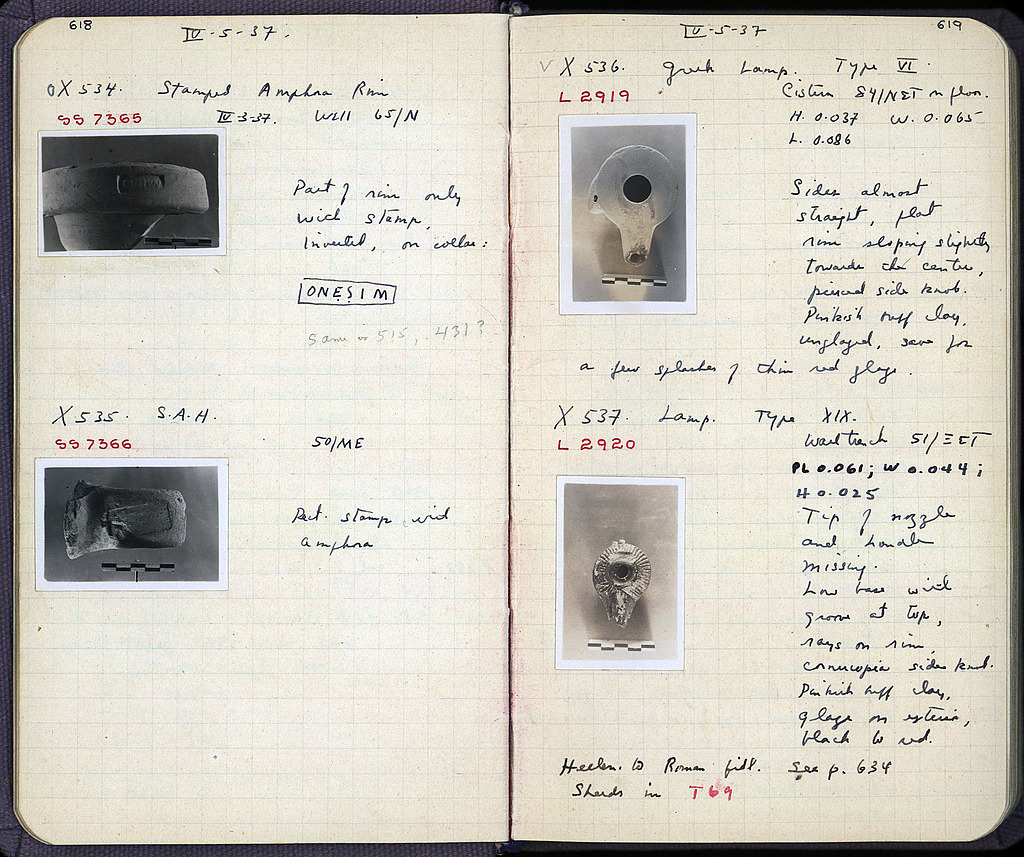 618
IV-5-37.
X 534. Stamped Amphora Rim
SS 7365 IV-3-37. Well 65/N
Part of rim only
with stamp,
inverted, on collar:
ONESIM
Same as 515, 431?
X 535. S.A.H.
SS 7366 50/ME
Rect. stamp with
amphora
619
IV-5-37
√ X 536. Greek Lamp. Type VI.
L 2919 Cistern 84/NΣT on floor.
H. 0.037 W. 0.065
L. 0.086
Sides almost
straight, flat
rim sloping slightly
towards the centre,
pierced side knob.
Pinkish buff clay,
unglazed, save for
a few splashes of thin red glaze.
X 537. Lamp. Type XIX.
L 2920 Wall trench 51/ΞΣT
PL 0.061; W 0.044;
H 0.025
Tip of nozzle
and handle
missing.
Low base with
groove at top,
rays on rim,
cornucopia side knob.
Pinkish buff clay,
glaze on exterior,
black to red.
Hellen. to Roman fill. See p. 634
Sherds in T 69